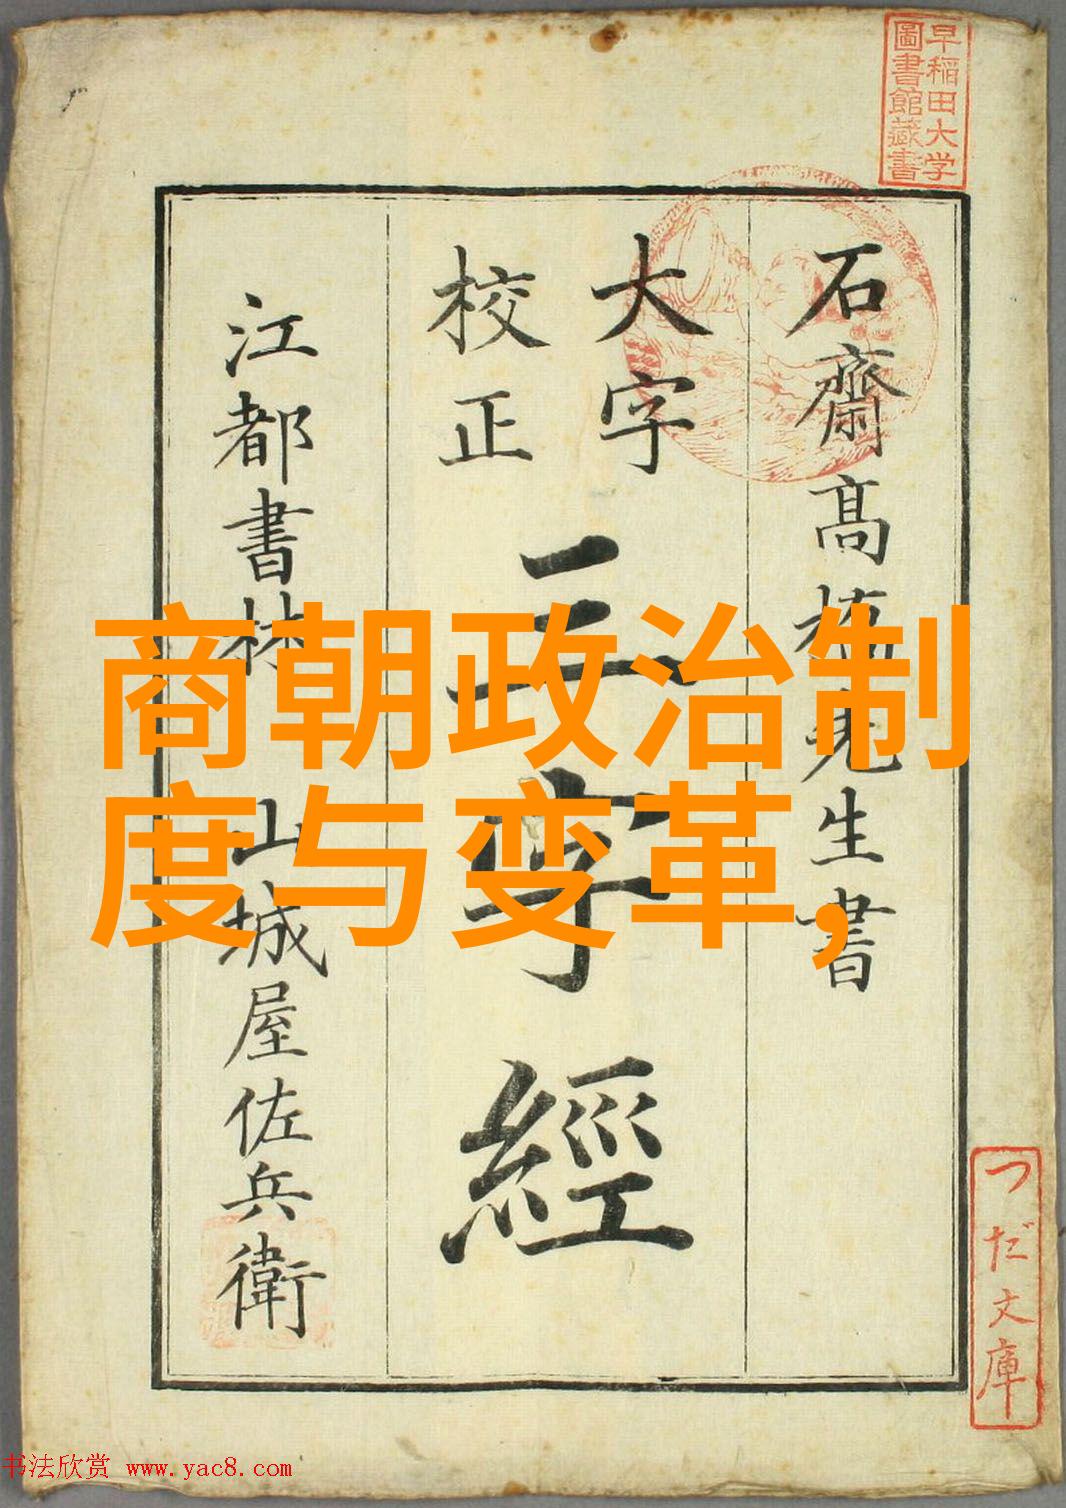 早稲田大学
圖書館藏書
石齋高梅先生書
大字
校正
三字經
江都書林 山城屋佐兵衛
商朝政治制
度与变革,
つだ文庫
书法欣赏 www.yac8.com